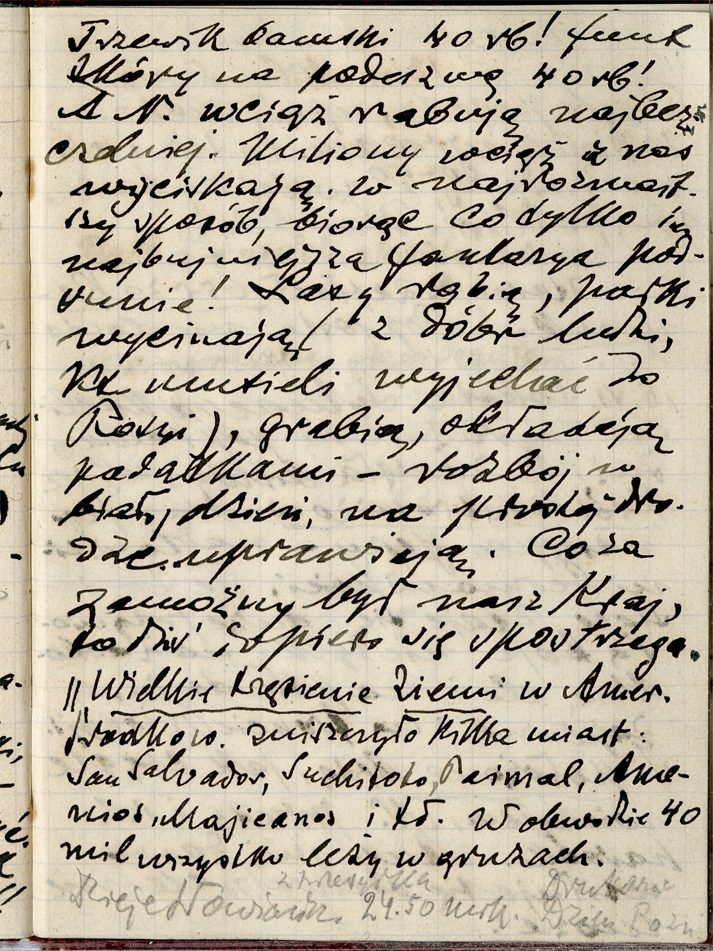 Trzewik damski 40 rb! funt
skóry na podeszwę 40 rb!
A N. wciąż rabują najbez-
czelniej. Miliony wciąż z nas
wyciskają. w najrozmait-
szy sposób, biorąc co tylko im
najbujniejsza fantazya pod-
sunie! Lasy rąbią, parki
wycinają ( z dóbr ludzi,
kt musieli wyjechać do
Rosyi ), grabią, okładają
podatkami – rozbój w
biały dzień, na prostej dro-
dze uprawiają. Co za
zamożny był nasz Kraj,
to dziś dopiero się spostrzega.
|| Wielkie trzęsienie Ziemi w Amer.
Środkow. zniszczyło kilka miast:
San Salvador, Suchitoto, Paimal, Ame-
nios, Majicanos i td. W obwodzie 40
mil wszystko leży w gruzach.
z przesyłką Drukarnia
Dzieje 24.50 mrk. Dzien Pozn